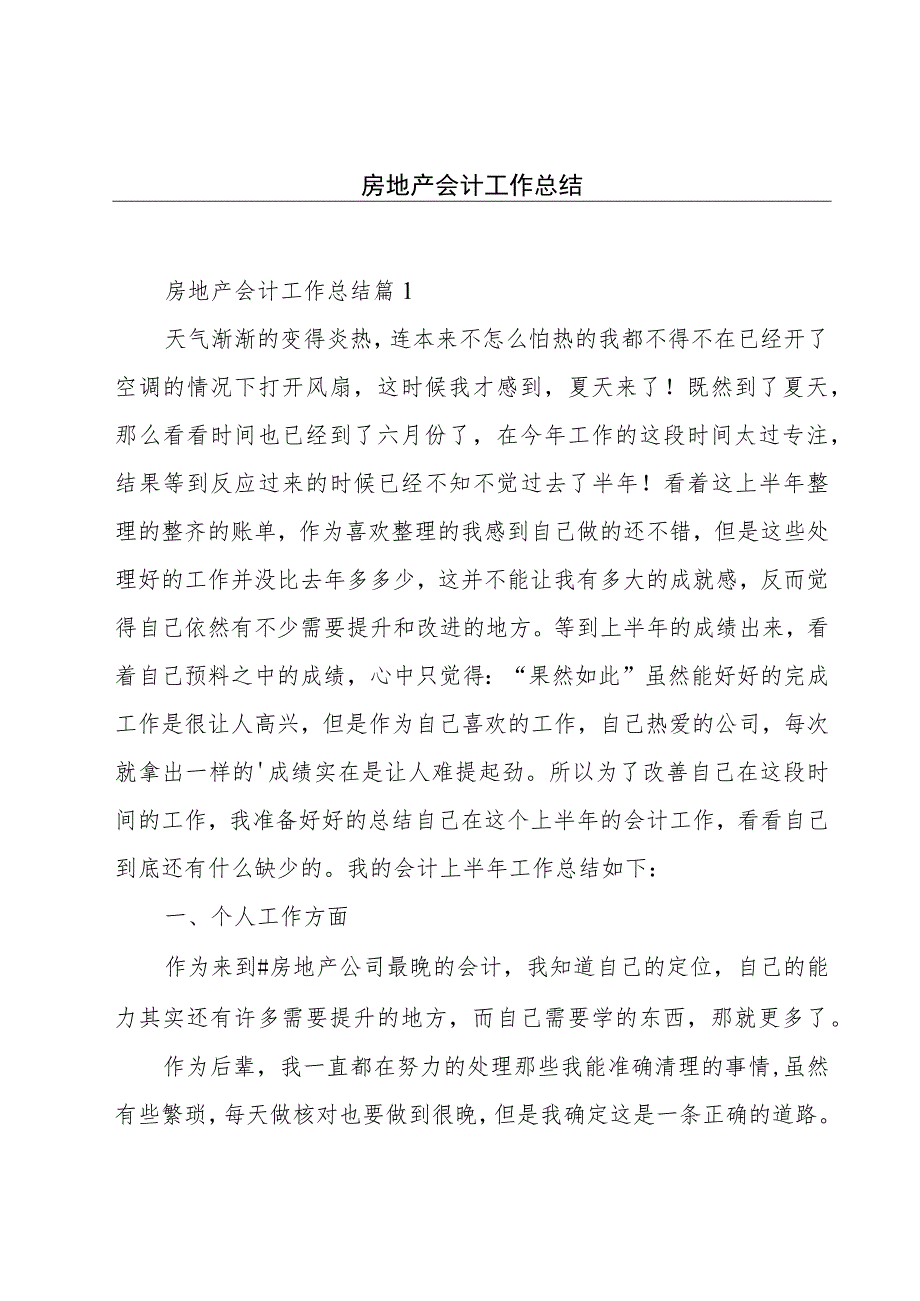 房地产会计工作总结
房地产会计工作总结篇1
天气渐渐的变得炎热，连本来不怎么怕热的我都不得不在已经开了
空调的情况下打开风扇，这时候我才感到，夏天来了！既然到了夏天，
那么看看时间也已经到了六月份了，在今年工作的这段时间太过专注，
结果等到反应过来的时候已经不知不觉过去了半年！看着这上半年整
理的整齐的账单，作为喜欢整理的我感到自己做的还不错，但是这些处
理好的工作并没比去年多多少，这并不能让我有多大的成就感，反而觉
得自己依然有不少需要提升和改进的地方。等到上半年的成绩出来，看
着自己预料之中的成绩，心中只觉得：“果然如此”虽然能好好的完成
工作是很让人高兴，但是作为自己喜欢的工作，自己热爱的公司，每次
就拿出一样的'成绩实在是让人难提起劲。所以为了改善自己在这段时
间的工作，我准备好好的总结自己在这个上半年的会计工作，看看自己
到底还有什么缺少的。我的会计上半年工作总结如下：
一、个人工作方面
作为来到#房地产公司最晚的会计，我知道自己的定位，自己的能
力其实还有许多需要提升的地方，而自己需要学的东西，那就更多了。
作为后辈，我一直都在努力的处理那些我能准确清理的事情,虽然
有些繁琐，每天做核对也要做到很晚，但是我确定这是一条正确的道路。